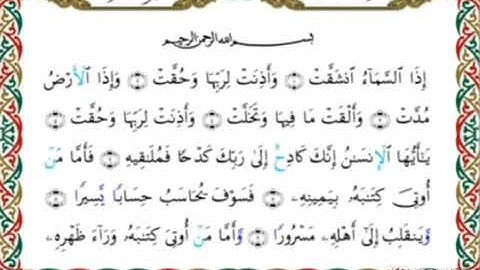 بِسْمِ اللَّهِ الرَّحْمَٰنِ الرَّحِيمِ
إِذَا السَّمَآءُ انشَقَّتْ ۝ وَأَذِنَتْ لِرَبِّهَا وَحُقَّتْ ۝ وَإِذَا الْأَرْضُ
مُدَّتْ ۝ وَأَلْقَتْ مَا فِيهَا وَتَخَلَّتْ ۝ وَأَذِنَتْ لِرَبِّهَا وَحُقَّتْ ۝
يَٰٓأَيُّهَا الْإِنسَٰنُ إِنَّكَ كَادِحٌ إِلَىٰ رَبِّكَ كَدْحًا فَمُلَٰقِيهِ ۝ فَأَمَّا مَنْ
أُوتِيَ كِتَٰبَهُۥ بِيَمِينِهِۦ ۝ فَسَوْفَ يُحَاسَبُ حِسَابًا يَسِيرًا ۝
وَيَنقَلِبُ إِلَىٰٓ أَهْلِهِۦ مَسْرُورًا ۝ وَأَمَّا مَنْ أُوتِيَ كِتَٰبَهُۥ وَرَآءَ ظَهْرِهِۦ